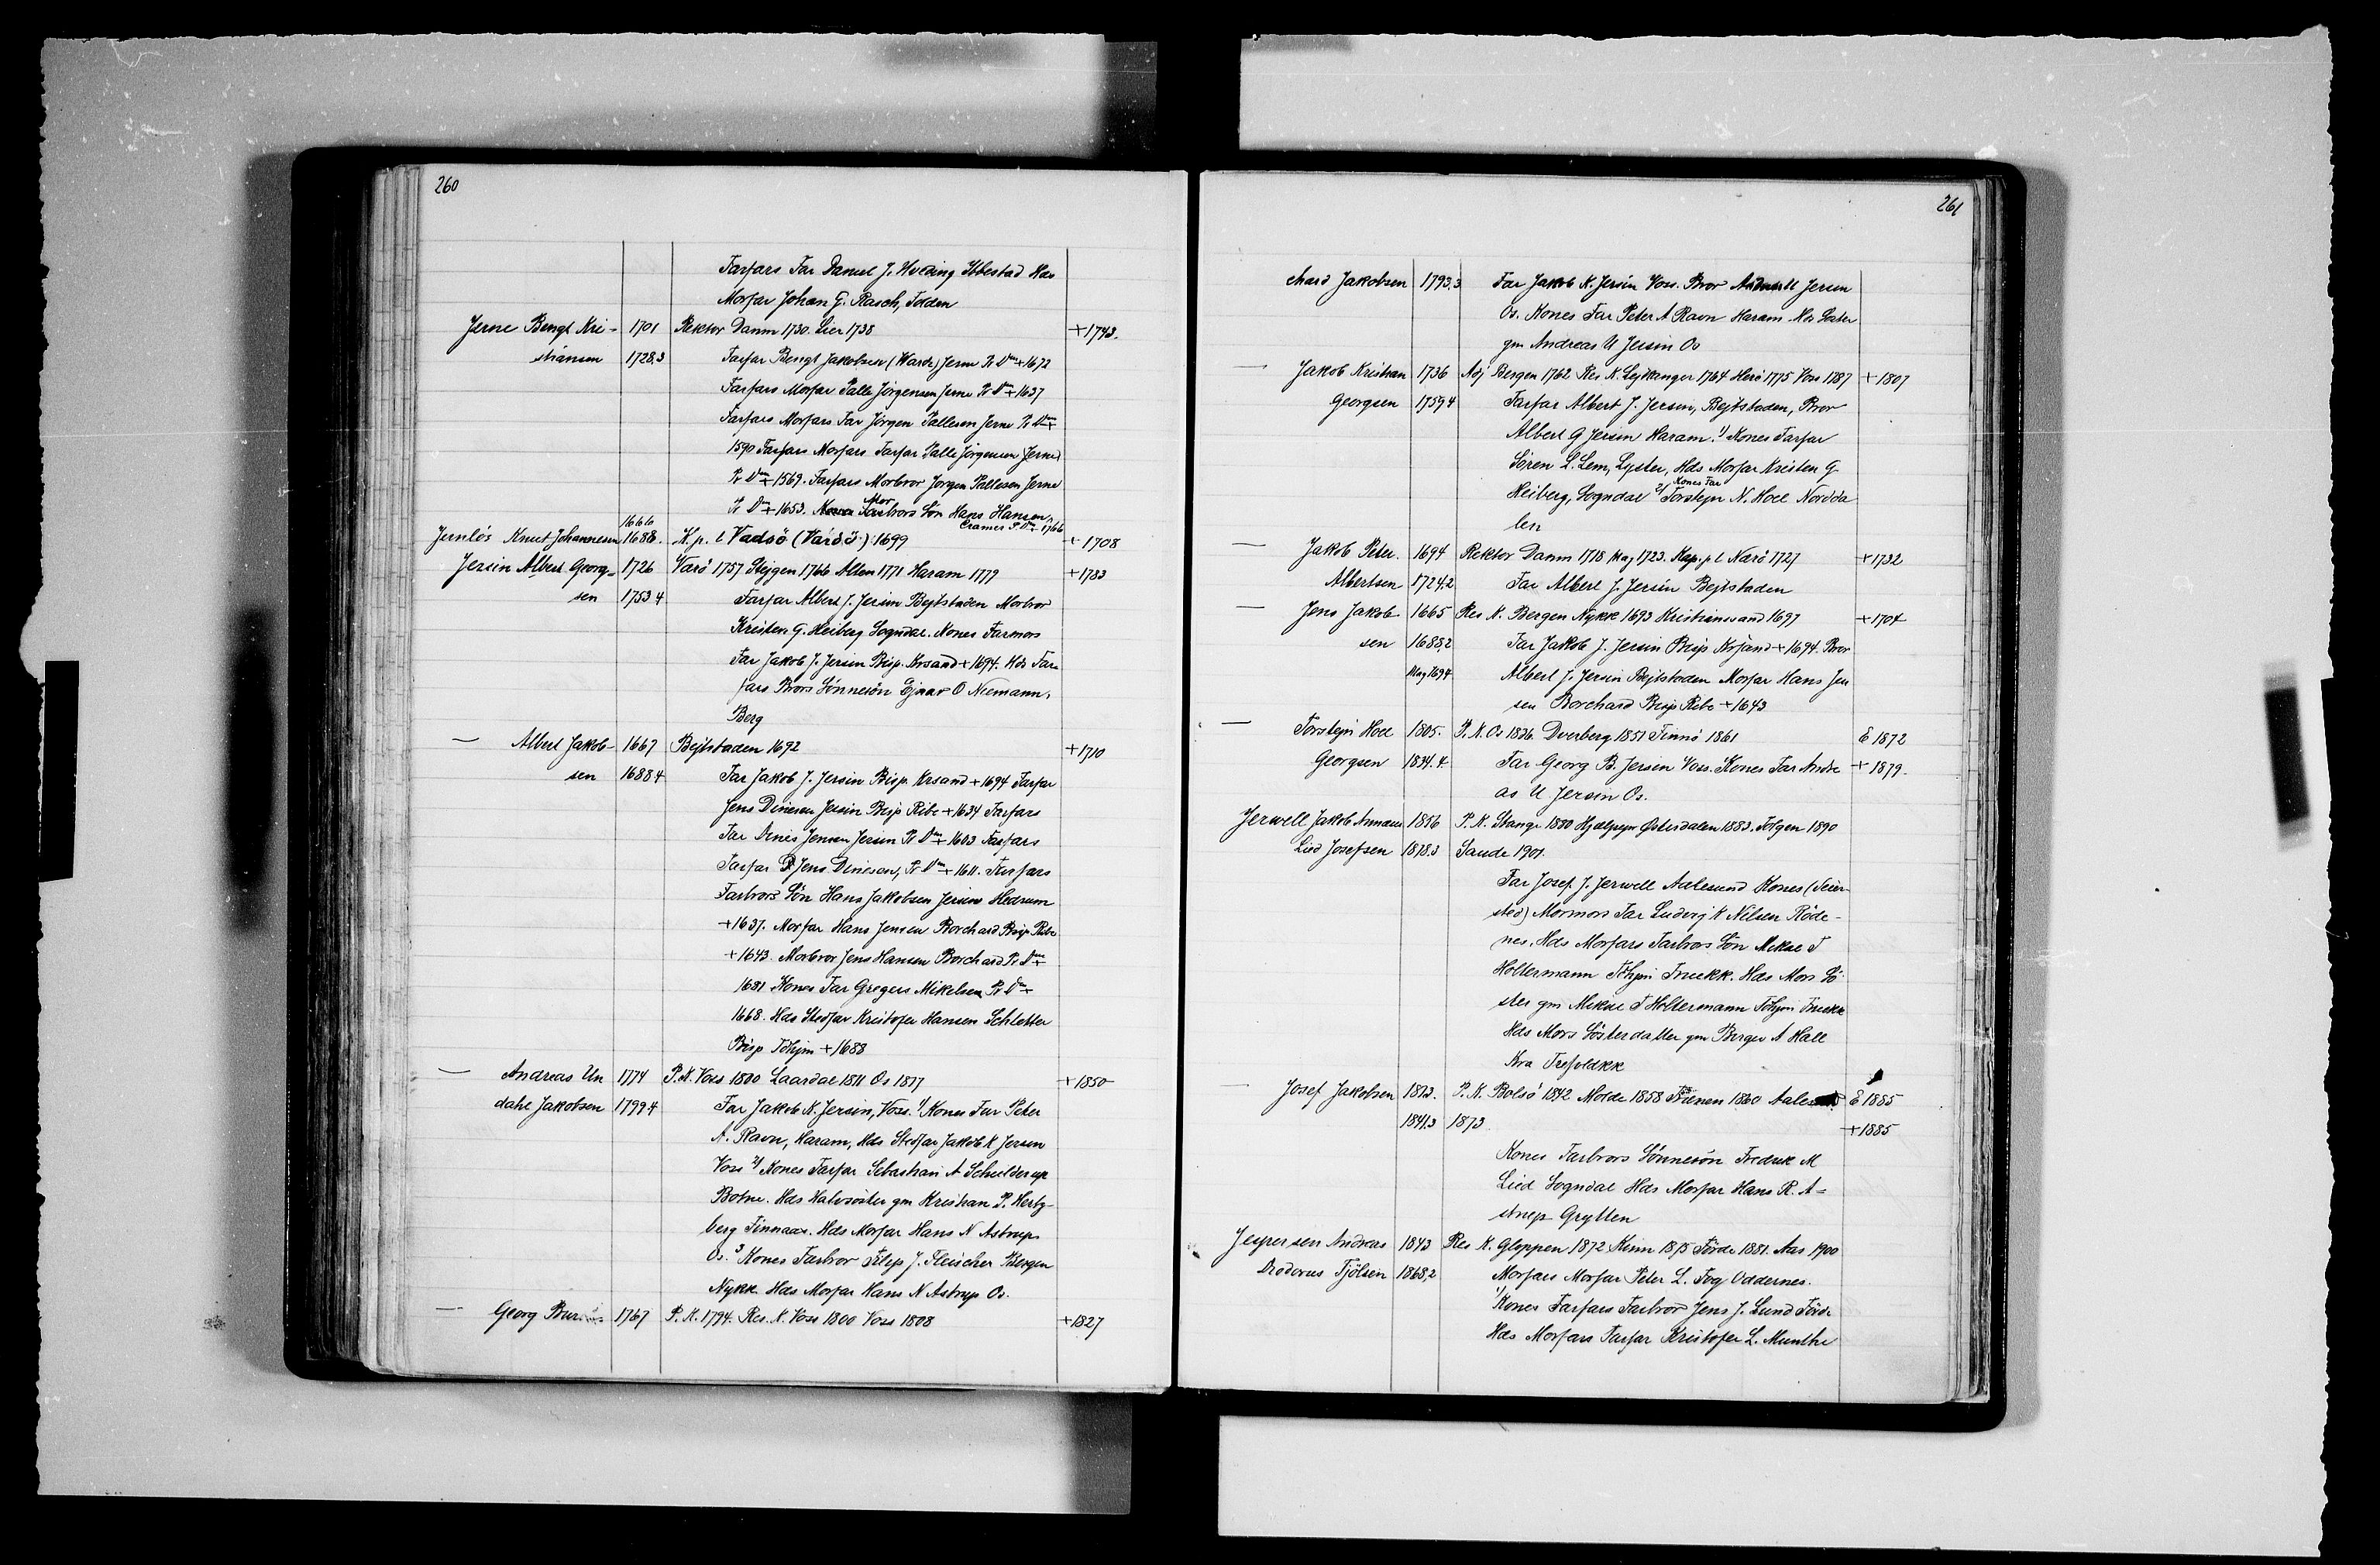 260
Farfars Far Daniel J. Hveding Ibbestad Hds
Morfar Johan G. Rasch, Folden
Jerne Bengt Kri- 1701 Rektor Danm 1730. Lier 1738 +1743.
stiansen 1728.3 Farfar Bengt Jakobsen (Warde) Jerne Pr Dm +1672
Farfars Morfar Palle Jörgensen Jerne Pr Dm +1637
Farfars Morfars Far Jörgen Pallesen Jerne Pr Dm +
1590 Farfars Morfars Farfar Palle Jörgensen Jerne
Pr Dm +1569. Farfars Morbror Jörgen Pallesen Jerne
Pr Dm +1653. Mor Farbrors Sön Hans Hansen,
Cramer P. Dm 1766
Jernlös Knut Johannesen 1666 1688. K.p. t Vadsö (Vardö:) 1699 + 1708
Jersin Albert Georg- 1726 Værö 1757 Stejgen 1766 Alten 1771 Haram 1779 +1783
sen 1753.4 Farfar Albert J. Jersin Bejtstaden Morbror
Kristen G. Heiberg Sogndal. Kones Farmors
Far Jakob J. Jersin Bisp. Krsand +1694. Hds Far-
fars Brors Sönnesön Ejnar O Niemann,
Berg
— Albert Jakob- 1667 Bejtstaden 1692 +1710
sen 1688.4 Far Jakob J. Jersin Bisp. Krsand +1694 Farfar
Jens Dinesen Jersin Bisp Ribe +1634 Farfars
Far Dines Jensen Jersin Pr Dm +1603 Farfars
Farfar Jens Dinesen, Pr Dm +1611. Farfars
Farbrors Sön Hans Jakobsen Jersin Hedrum
+1637. Morfar Hans Jensen Borchard Bisp Ribe
+1643. Morbror Jens Hansen Borchard Pr Dm +
1681 Kones Far Gregers Mikelsen Pr Dm +
1668. Hds Stedfar Kristofer Hansen Schletter
Bisp Tdhjm +1688
— Andreas Un 1774 P.K. Voss 1800 Laardal 1811 Os 1817 +1850
dahl Jakobsen 1799.4 Far Jakob K. Jersin, Voss. 1) Kones Far Peter
A. Ravn, Haram, Hds Stedfar Jakob K Jersin
Voss 2) Kones Farfar Sebastian A Schelderup
Botne. Hds Halvsöster gm Kristian P. Hertz-
berg Finnaas. Hds Morfar Hans N Astrup
Os. 3 Kones Farbror Filip J. Fleischer Bergen
Nykk. Hds Morfar Hans N Astrup Os.
— Georg 1767 P.K. 1794. Res. K. Voss 1800 Voss 1808 +1827
261
chard Jakobsen 1793.3 Far Jakob K. Jersin Voss. Bror Andreas U Jersin
Os. Kones Far Peter A Ravn Haram. Hds Söster
gm Andreas U Jersin Os
— Jakob Kristian 1736 Adj Bergen 1762 Res K. Lejkanger 1764 Herö 1775 Voss 1787 + 1807
Georgsen 1759.4 Farfar Albert J. Jersin, Bejtstaden, Bror
Albert G Jersin Haram. 1) Kones Farfar
Sören L. Lem, Lyster, Hds Morfar Kristen G
Heiberg, Sogndal 2) Kones Far Torstejn N. Hoel Nordda
len
— Jakob Peter 1694 Rektor Danm 1718 Mag 1723. Kap. p l Nærö 1727 +1732
Albertsen 1724.2 Far Albert J. Jersin Bejtstaden
— Jens Jakob 1665 Res K. Bergen Nykk 1693 Kristianssand 1697 +1704
sen 1688.2 Far Jakob J. Jersin Bisp Krsand +1694. Bror
Mag 1694 Albert J. Jersin Bejtstaden Morfar Hans Jen
sen Borchard Bisp Ribe +1643
— Torstejn Hoel 1805. P.K. Os 1836. Dverberg 1851 Finnö 1861 E 1872
Georgsen 1834.4 Far Georg B. Jersin Voss. Kones Far Andre +1879.
as U Jersin Os.
Jerwell Jakob 1856 P.K. Stange 1880 Hjælpepr Østerdalen 1883. Tolgen 1890
Lied Josefsen 1878.3 Sande 1901.
Far Josef J. Jerwell Aalesund Kones (Feier-
sted) Mormors Far Ludvig K Nilsen Röde-
nes, Hds Morfars Farbrors Sön Mikael T
Holtermann Tdhjm Fruekk. Hds Mors Sö-
ster gm Mikael T Holtermann Tdhjm Fruekk
Hds Mors Sösterdatter gm Birger A Hall
Kra Trefoldkk
— Josef Jakobsen 1813. P.K. Bolsö 1842 Molde 1858 1860 E 1885
1841.3 1873 +1885
Kones Farbrors Sönnesön Fredrik M
Lied Sogndal Hds Morfar Hans R. A-
strup Grytten
Jespersen Andreas 1843 Res K. Gloppen 1872 Kinn 1875 Förde 1881. Aas 1900
Diodorus Tjölsen 1868.2 Morfars Morfar Peter L. Fog Oddernes.
1) Kones Farfars Farbror Jens J. Lund Förde
Hds Morfars Farfar Kristofer L. Munthe